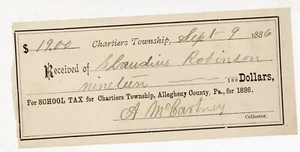 $ 19.00 Chartiers Township, Sept 9 1886
Received of Claudius Robinson
nineteen — 100 Dollars,
For SCHOOL TAX for Chartiers Township, Allegheny County, Pa., for 1886.
A McCartney
Collector.